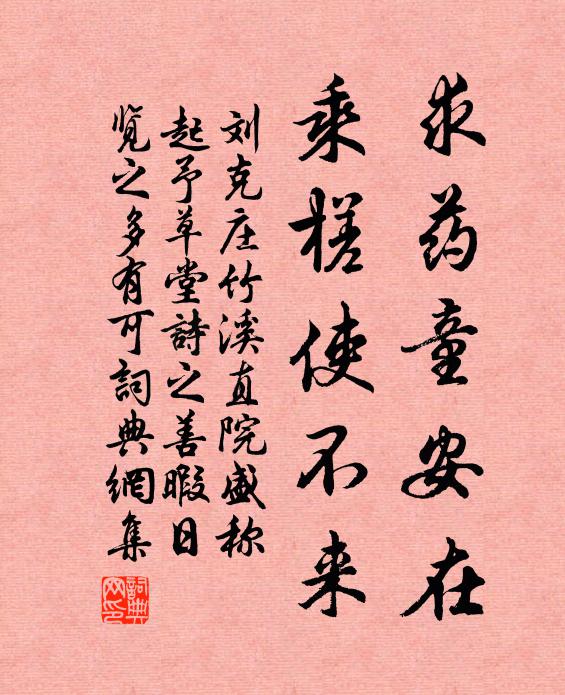 求药童安在
乘槎使不来
刘克庄竹溪直院盛称
起予草堂詩之善暇日
览之多有可詞典網集
詞典网印